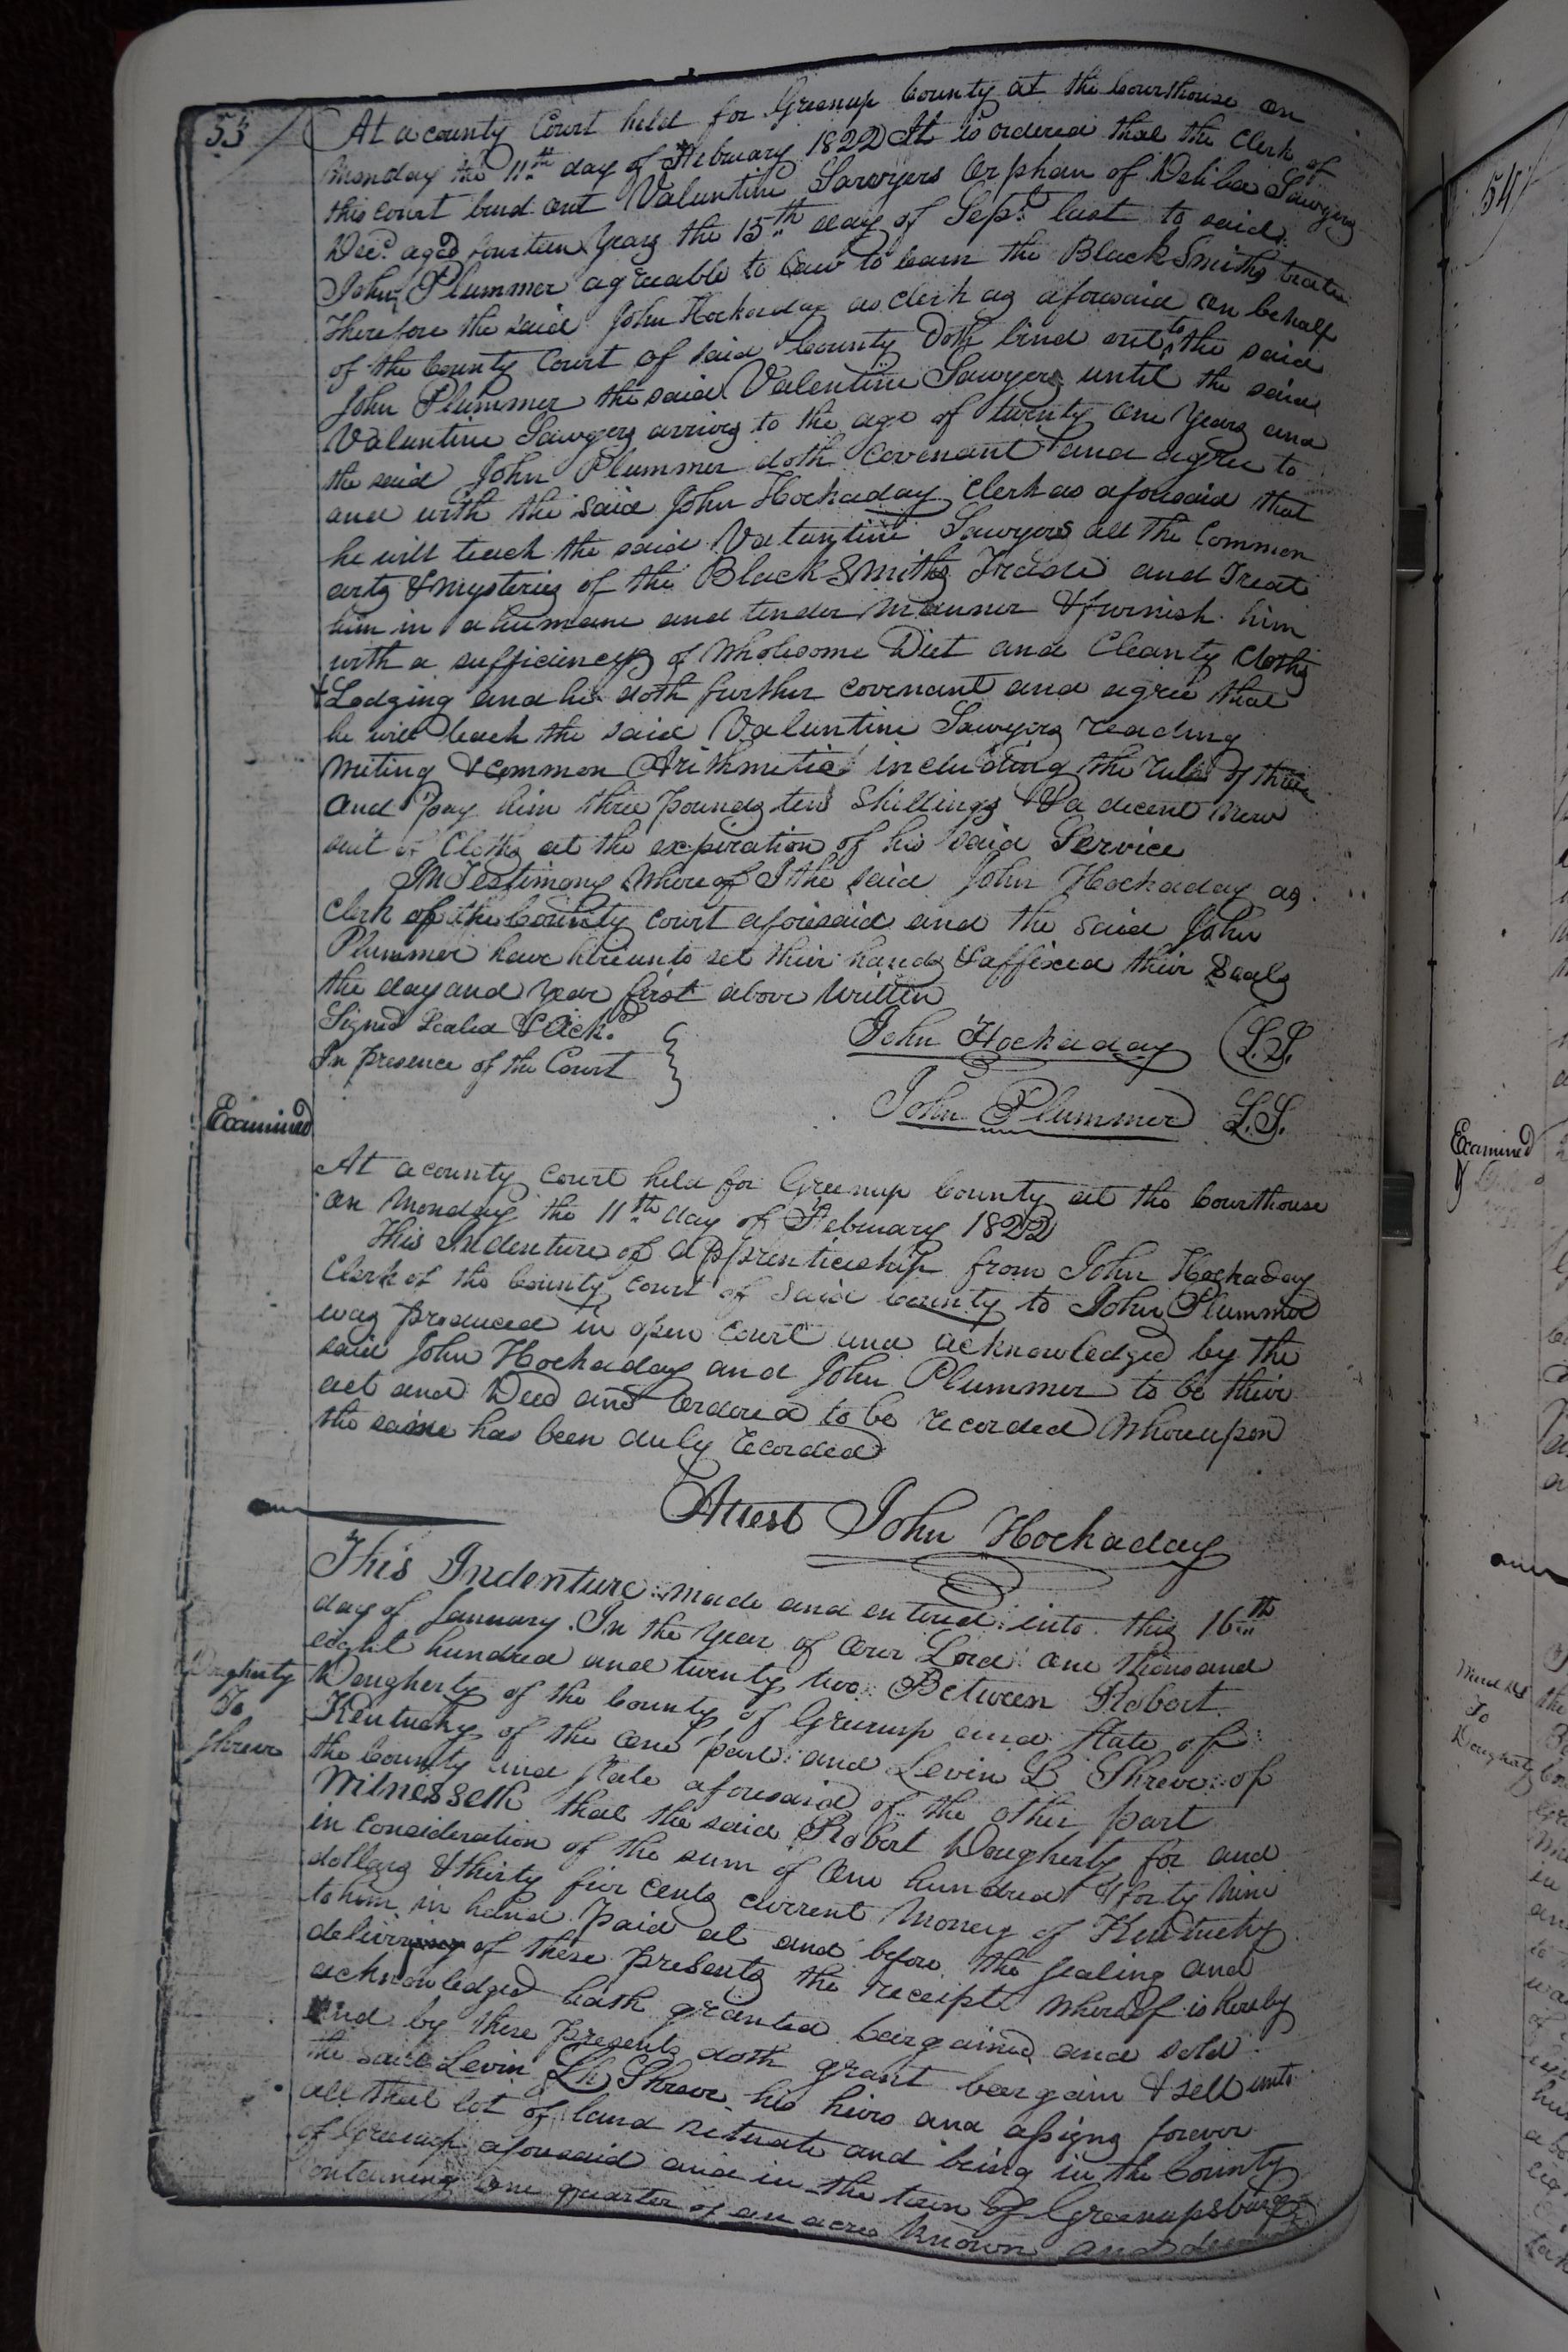 53
At a county Court held for Greenup County at the Courthouse on
Monday the 11th day of February 1822 It is ordered that the Clerk of
this Court bind out Valuntine Sawyers Orphan of Sawyers
Decd. aged fourteen Years the 15th day of Sept. last to said
John Plummer agreeable to Law to learn the Black Smiths trade
Therefore the said John Hockaday as Clerk as aforesaid on behalf
of the County Court of said County Doth bind out to the said
John Plummer the said Valentine Sawyers until the said
Valuntine Sawyers arrives to the age of twenty one Years and
the said John Plummer doth Covenant and agree to
and with the said John Hockaday Clerk as aforesaid that
he will teach the said Valuntine Sawyers all the Common
arts & mysteries of the Black Smiths Trade and Treat
him in a humane and tender Manner & furnish him
with a sufficiency of Wholesome Diet and Cleanty Cloths
& Lodging and he doth further covenant and agree that
he will teach the said Valuntine Sawyers reading
Writing & common Arithmetic including the rule of three
And pay him three pounds ten Shillings & a decent New
suit of Cloths at the expiration of his said Service
In Testimony Whereof I the said John Hockaday as
Clerk of the County Court aforesaid and the said John
Plummer have hereunto set their hands & affixed their Seals
the day and Year first above Written
Signed Sealed & Ackd.
In presence of the Court
John Hockaday (L.S.
John Plummer L.S.
Examined
At a county Court held for Greenup County at the Courthouse
on Monday the 11th day of February 1822
This Indenture of Apprenticeship from John Hockaday
Clerk of the County Court of said County to John Plummer
was produced in open Court and acknowledged by the
said John Hockaday and John Plummer to be their
act and Deed and ordered to be recorded Whereupon
the same has been duly recorded
Attest John Hockaday
This Indenture made and entered into this 16th
day of January In the Year of Our Lord One thousand
eight hundred and twenty two Between Robert
Dougherty To Shreve
Dougherty of the County of Greenup and State of
Kentucky of the One part and Levin L Shreve of
the County and State aforesaid of the other part
Witnesseth that the said Robert Dougherty for and
in Consideration of the sum of One hundred & forty Nine
dollars & thirty five cents current Money of Kentucky
to him in hand Paid at and before the sealing and
delivery of these Presents the receipt Whereof is hereby
acknowledged hath granted bargained and sold
and by these presents doth grant bargain & sell unto
the said Levin L Shreve his heirs and assigns forever
all that lot of land situate and being in the County
of Greenup aforesaid and in the town of Greenupsburg
containing one quarter of an acre known and
54
Examined
To